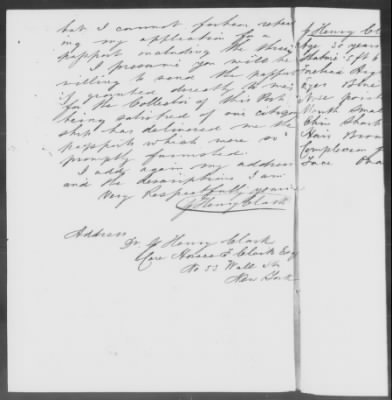 but I cannot forbear repeat
ing my application for a
passport including the three
I presume you will be
willing to send the passport
if granted directly to me
for the Collector of this Port
being satisfied of our citizen
ship has delivered me the
passports which were so
promptly furnished.
I add again my address
and the descriptions I am
Very Respectfully yours
G Henry Clark
Address
Dr. G Henry Clark
Care Horace F Clark Esq
No 53 Wall St
New York
G Henry Clark
Age 30 years
Stature 5 ft 6
Eyes Blue
Nose point
Mouth Smal
Chin Short
Hair Brow
Complexion
Face